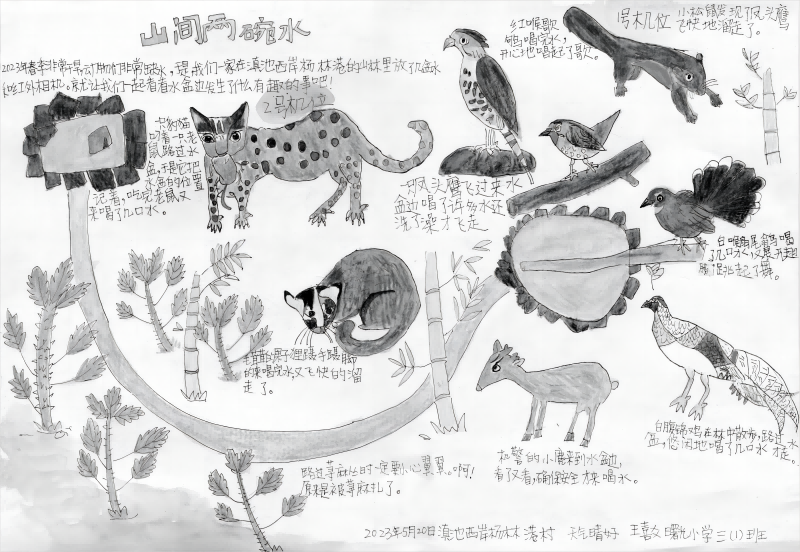 山间两碗水
2023年春季非常干旱动物们非常缺水,是我们一家在滇池西岸杨林港的山林里放了几盆水
和红外相机。就让我们一起看看水盆边发生了什么有趣的事吧!
1号机位
小松鼠发现了凤头鹰
飞快地溜走了。
红喉歌
鸲喝完水,
开心地唱起了歌。
2号机位
一只豹猫
叼着一只老
鼠路过水
盆,于是它把
水盆的位置
记着,吃完老鼠又
来喝了几口水。
一只凤头鹰飞过来水
盆边喝了许多水还
洗了澡才飞走
白喉扇尾鹟喝
了几口水,又展开翅
膀跳起了舞。
毛茸茸的果子狸蹑手蹑脚
的来喝完水,又飞快的溜
走了。
机警的小麂来到水盆边,
看了又看,确保安全才来喝水。
白腹锦鸡在林中散步,路过水
盆,悠闲地喝了几口水才走。
路过荨麻丛时一定要小心翼翼。啊!
原来是被荨麻扎了。
2023年5月20日滇池西岸杨林港村 天气晴好 王喜文 曙光小学三(1)班